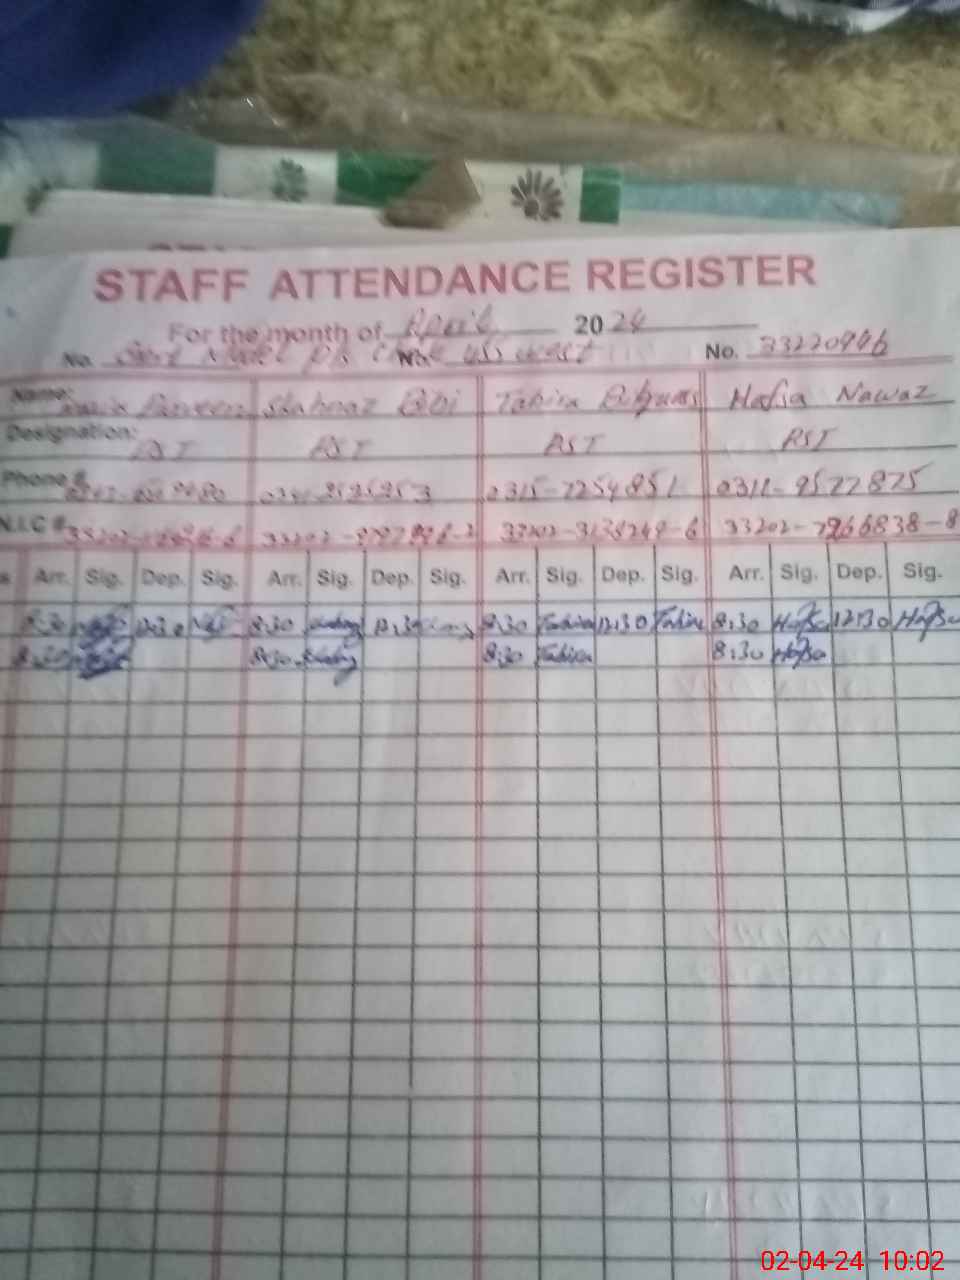 STAFF ATTENDANCE REGISTER
For the month of April 2024
No. Govt Model P/S No. 455 West No. 33220996
Name: Parveen Shahnaz Bibi Tahira Hafsa Nawaz
Designation: PST PST PST PST
Phone # 0315-7254851 0311-9577875
N.I.C # 33202-7966838-8
Arr. Sig. Dep. Sig. Arr. Sig. Dep. Sig. Arr. Sig. Dep. Sig. Arr. Sig. Dep. Sig.
8:30 12:30 8:30 12:30 8:30 Tahira 12:30 Tahira 8:30 Hafsa 12:30 Hafsa
8:30 8:30 8:30 Tahira 8:30 Hafsa
02-04-24 10:02